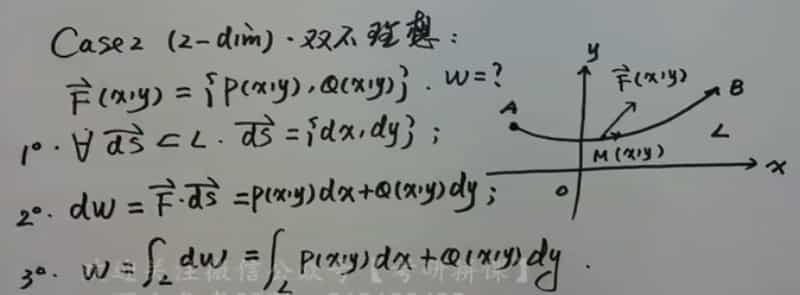 Case2 (2-dim)·双不理想：
F⃗(x,y) = {P(x,y), Q(x,y)}. w=?
1°. ∀ d⃗s ⊂ L. d⃗s = {dx, dy};
2°. dw = F⃗·d⃗s = P(x,y)dx+Q(x,y)dy;
3°. w = ∫_L dw = ∫_L P(x,y)dx+Q(x,y)dy.
y
F⃗(x,y)
A
B
L
M(x,y)
x
O